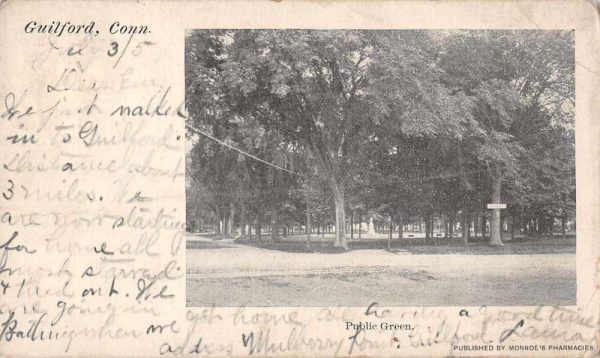 Guilford, Conn.
July 3/5
Dear
We just walked
in to Guilford
distance about
3 miles. We
are now starting
for home all
most
& tired out. We
are going in
Bathing when we get home, a good time
address Mulberry Farm, Guilford,
Public Green.
PUBLISHED BY MONROE'S PHARMACIES